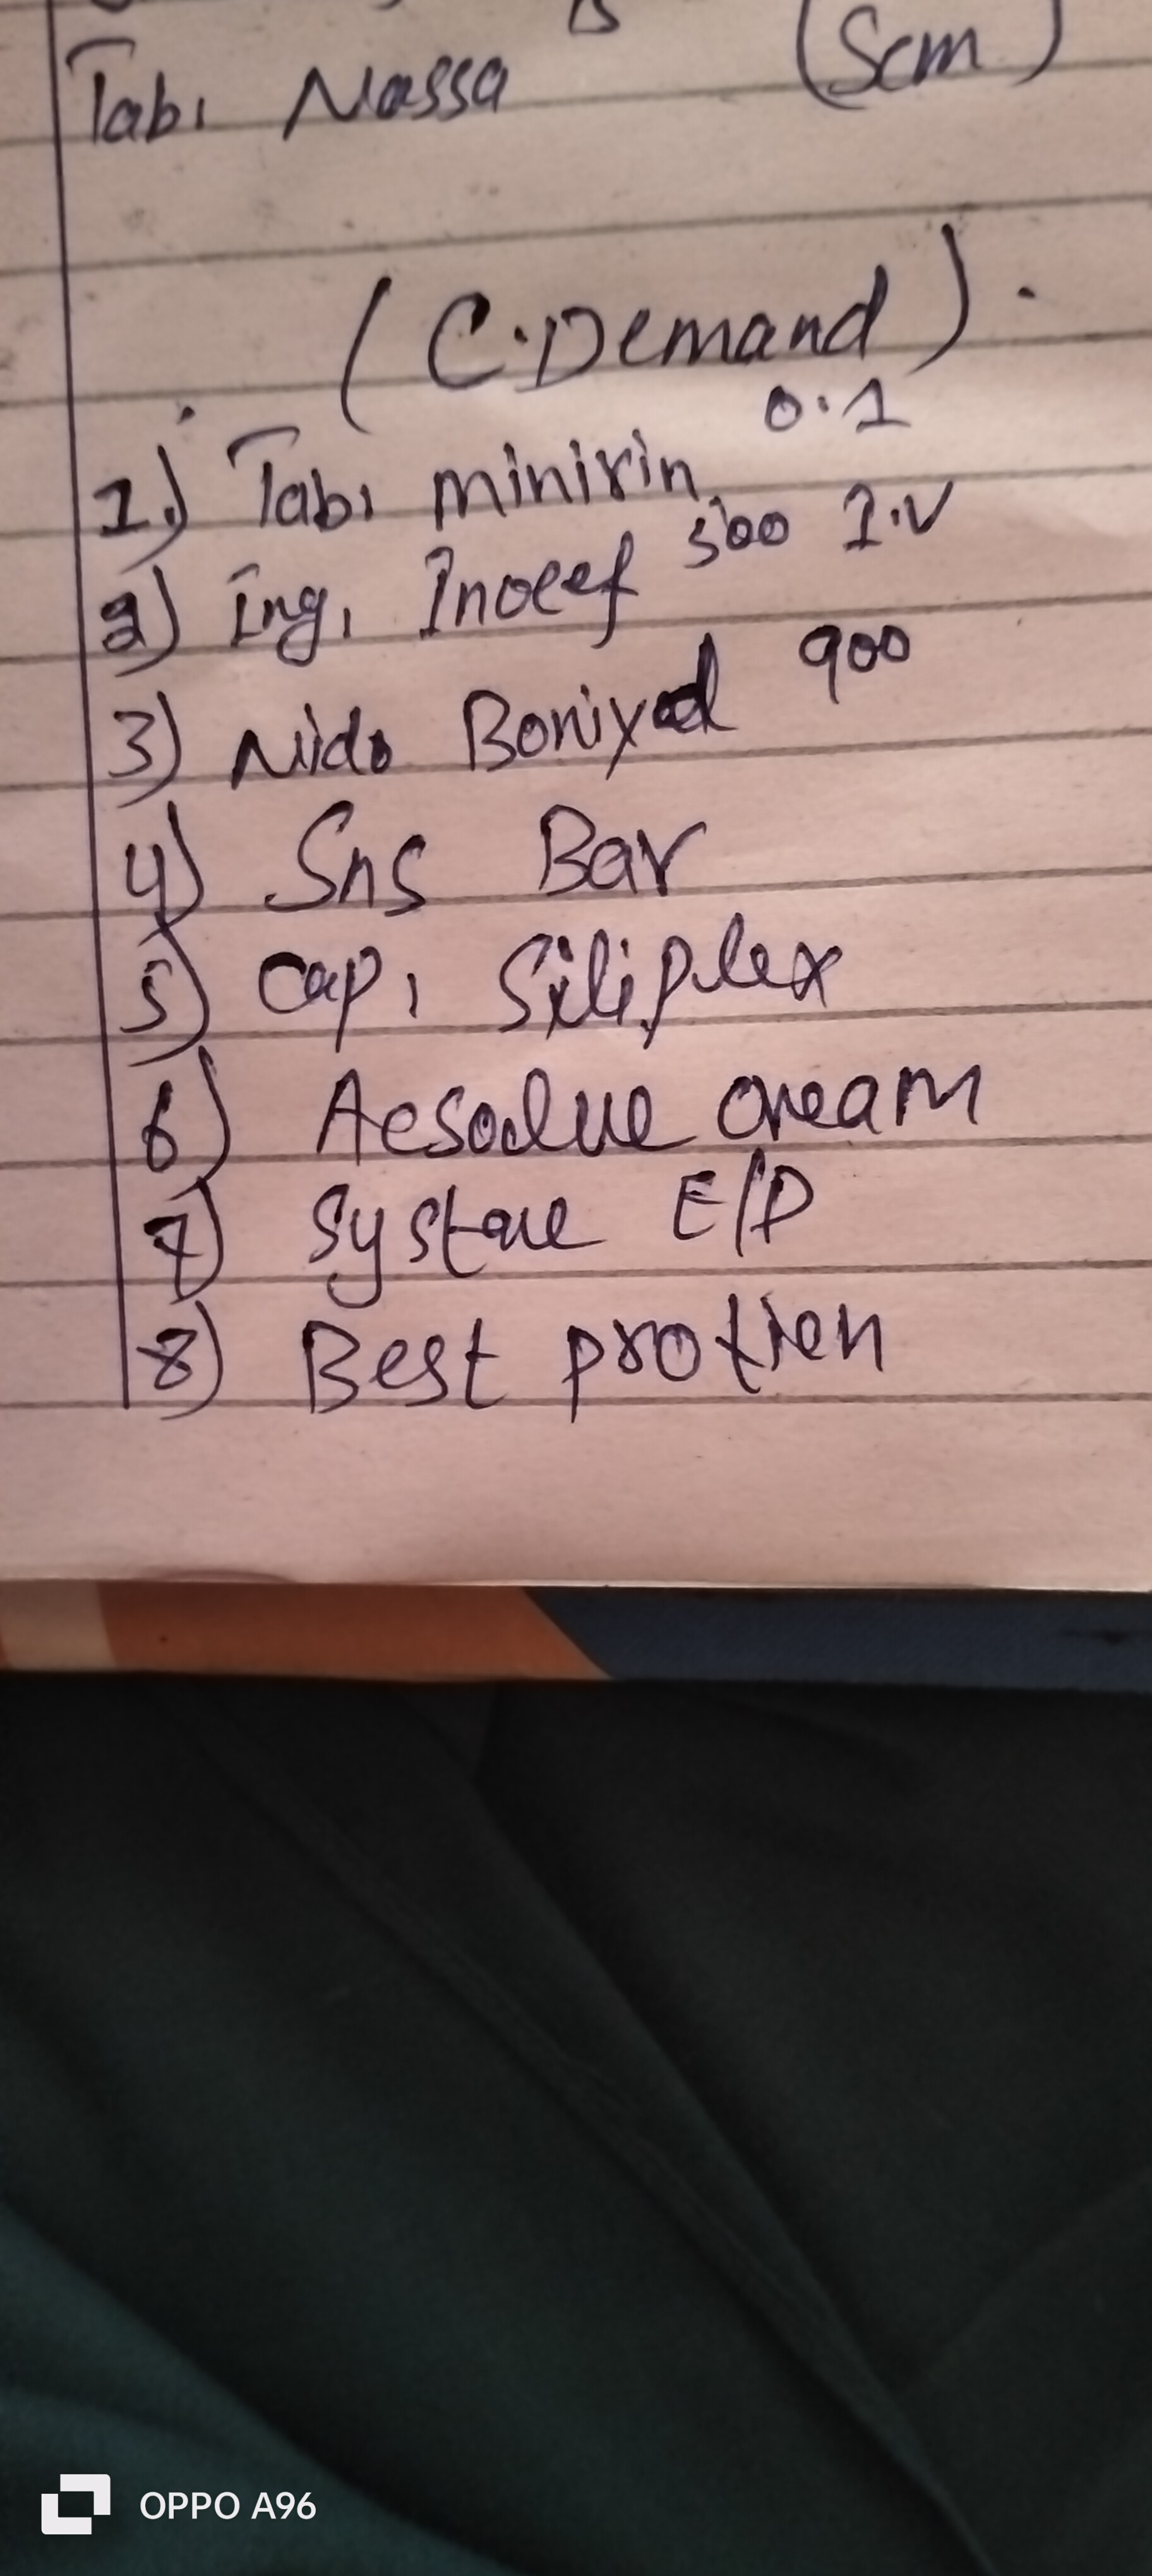 (Scm)
Tab. Nassa
(C.Demand).
1.) Tab. minirin 0.1
2) Ing. Inocef 500 I.V
3) Nido Boniyad 900
4) Sns Bar
5) Cap. Siliplex
6) Aesodue cream
7) Systane E/D
8) Best protien
OPPO A96